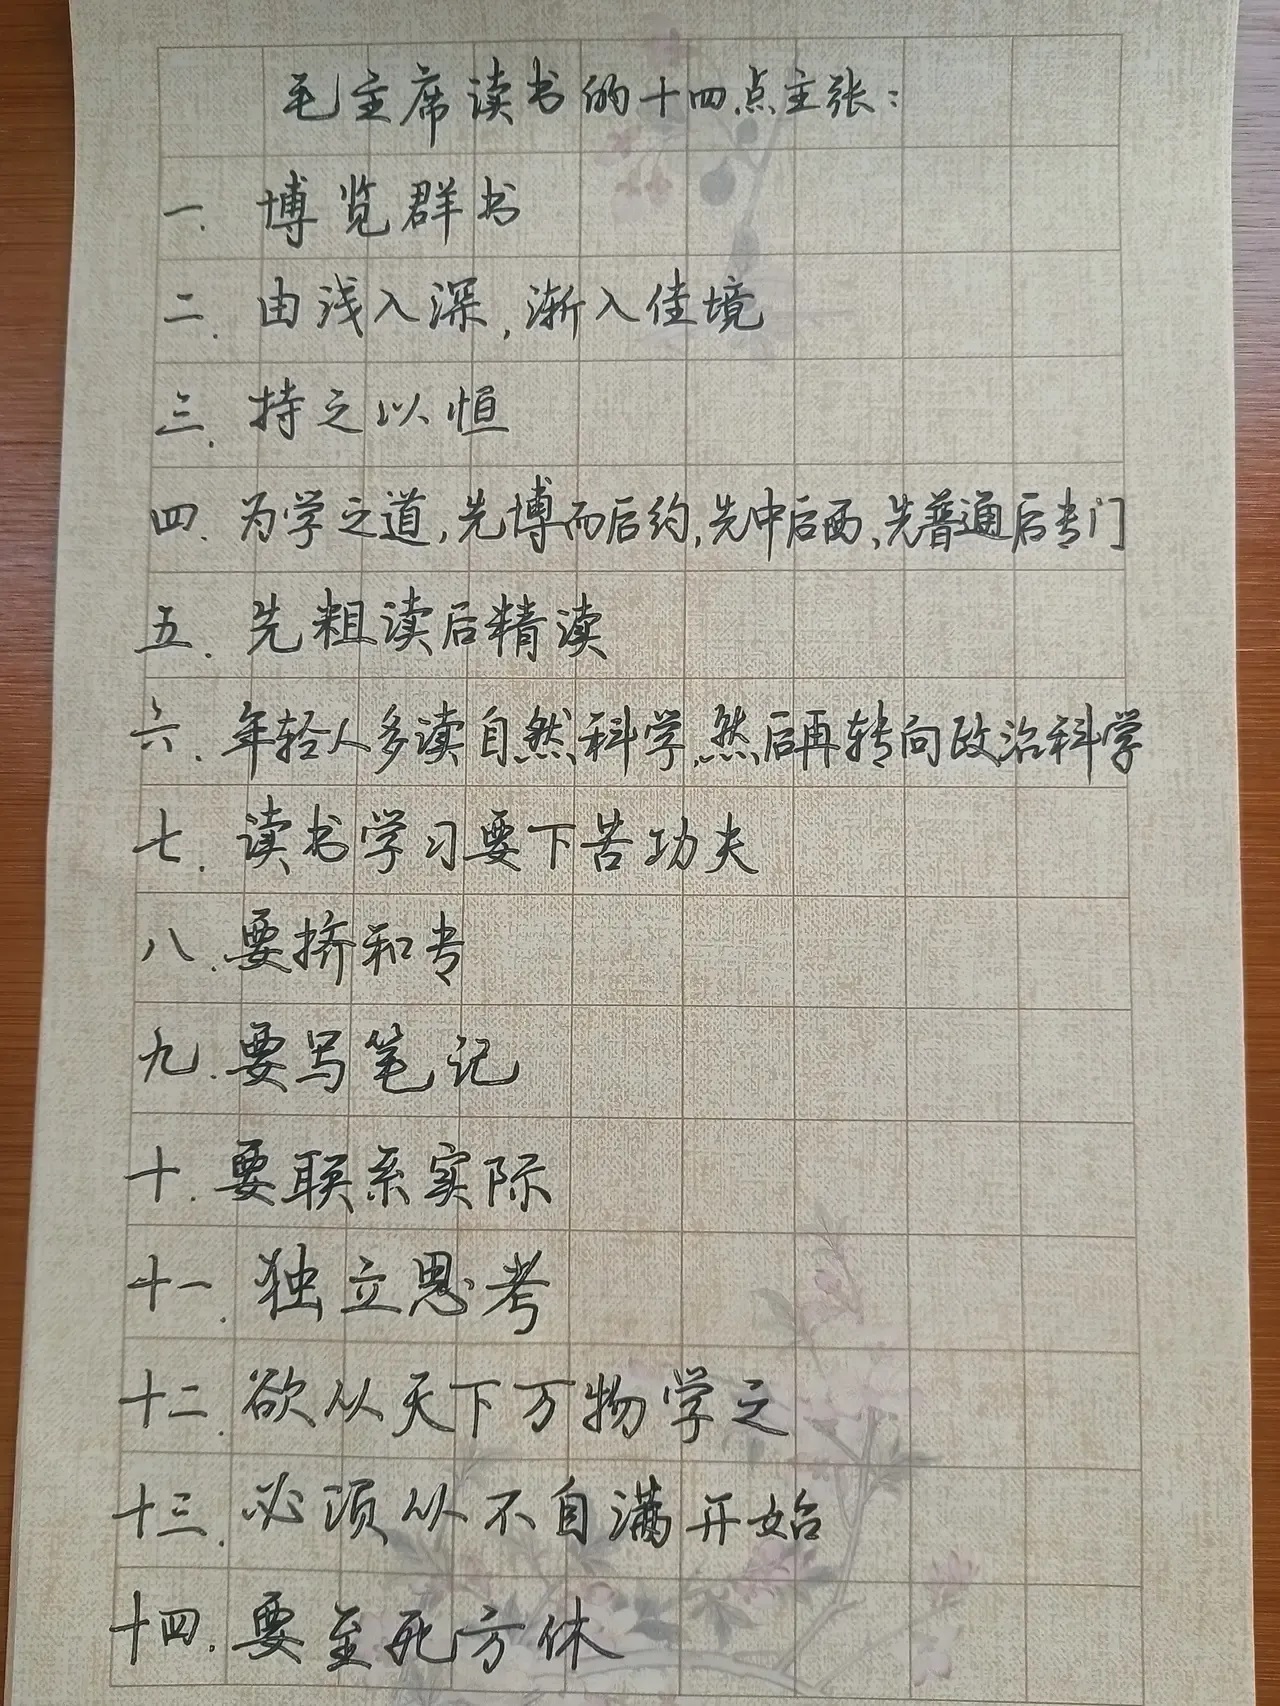 毛主席读书的十四点主张：
一. 博览群书
二. 由浅入深，渐入佳境
三. 持之以恒
四. 为学之道，先博而后约，先中后西、先普通后专门
五. 先粗读后精读
六. 年轻人多读自然科学，然后再转向政治科学
七. 读书学习要下苦功夫
八. 要挤和专
九. 要写笔记
十. 要联系实际
十一. 独立思考
十二. 欲从天下万物学之
十三. 必须从不自满开始
十四. 要至死方休